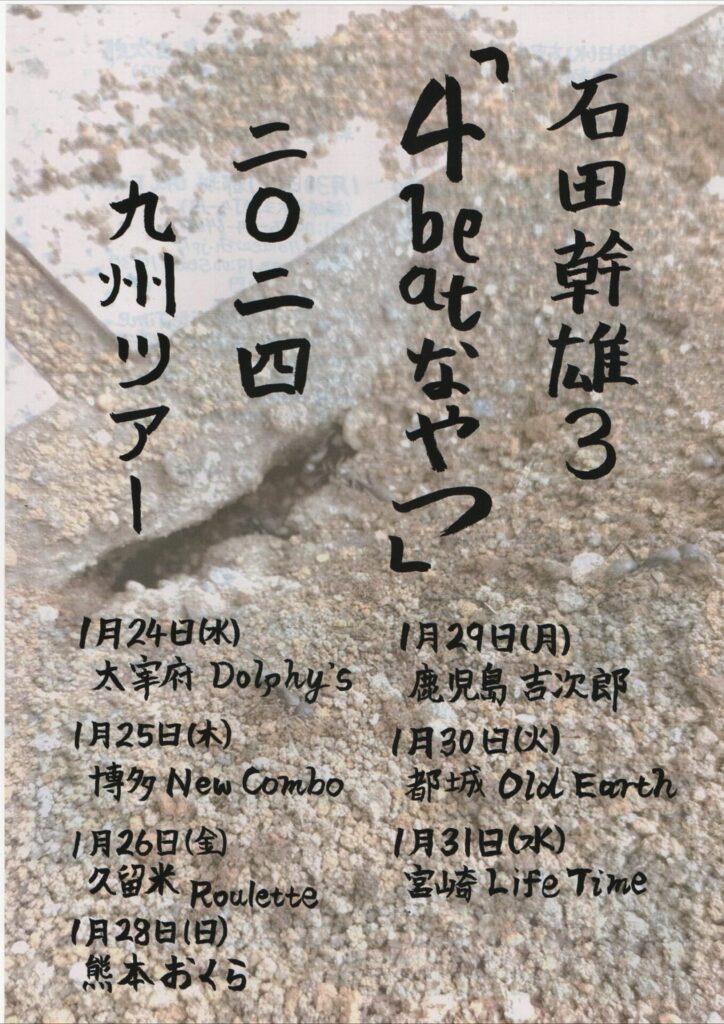 石田幹雄3
「4beatなやつ」
二〇二四
九州ツアー
1月24日(水)
太宰府 Dolphy's
1月25日(木)
博多 New Combo
1月26日(金)
久留米 Roulette
1月28日(日)
熊本おくら
1月29日(月)
鹿児島 吉次郎
1月30日(火)
都城 Old Earth
1月31日(水)
宮崎 Life Time